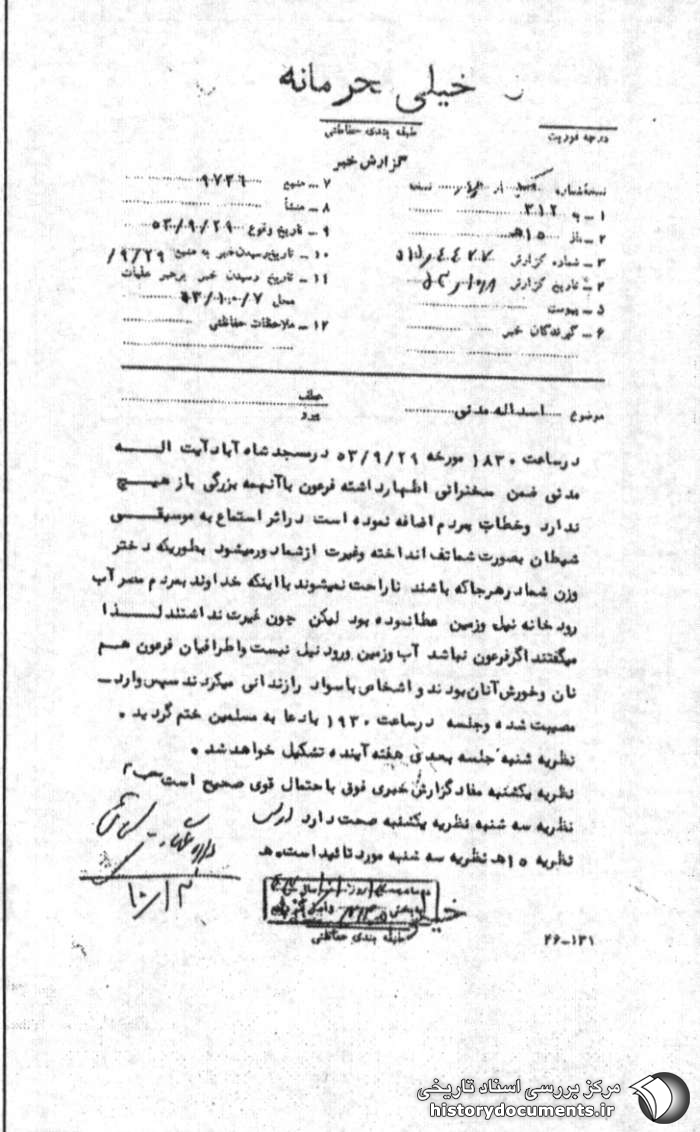 خیلی محرمانه
درجه فوریت
طبقه بندی حفاظتی
گزارش خبر
نسخه شماره از نسخه
۱ ـ به ۳۱۲
۲ ـ از ۱۵هـ
۳ ـ شماره گزارش
۴ ـ تاریخ گزارش
۵ ـ پیوست
۶ ـ گیرندگان خبر
۷ ـ منبع ۹۷۳۶
۸ ـ منشأ
۹ ـ تاریخ وقوع ۵۳/۹/۲۹
۱۰ ـ تاریخ رسیدن خبر به منبع ۹/۲۹/
۱۱ ـ تاریخ رسیدن خبر برهبر عملیات
محل ۵۳/۱۰/۷
۱۲ ـ ملاحظات حفاظتی
موضوع اسداله مدنی
عطف
پیرو
درساعت ۱۸۳۰ مورخه ۵۳/۹/۲۹ درمسجد شاه آباد آیت الـــه
مدنی ضمن سخنرانی اظهارداشته فرعون باآنهمه بزرگی باز هیــچ
ندارد وخطاب بمردم اضافه نموده است دراثر استماع به موسیقــی
شیطان بصورت شماتف انداخته وغیرت ازشمادورمیشود بطوریکه دختر
وزن شمادرهرجاکه باشند ناراحت نمیشوند بااینکه خداوند بمردم مصرآب
رودخانه نیل وزمین عطانموده بود لیکن چون غیرت نداشتند لـــذا
میگفتند اگرفرعون نباشد آب وزمین ورود نیل نیست واطرافیان فرعون هــم
نان وخورش آنان بودند و اشخاص باسواد رازندانی میکردند سپس وارد ـ
مصیبت شده وجلسه درساعت ۱۹۳۰ بادعا به مسلمین ختم گردید .
نظریه شنبه جلسه بعدی هفته آینده تشکیل خواهد شد .
نظریه یکشنبه مفادگزارش خبری فوق باحتمال قوی صحیح است
نظریه سه شنبه نظریه یکشنبه صحت دارد
نظریه ۱۵هـ نظریه سه شنبه مورد تائید است . هـ
۱۰/۱۲
خیلی
طبقه بندی حفاظتی
۲۶-۱۳۱
مرکز بررسی اسناد تاریخی
historydocuments.ir